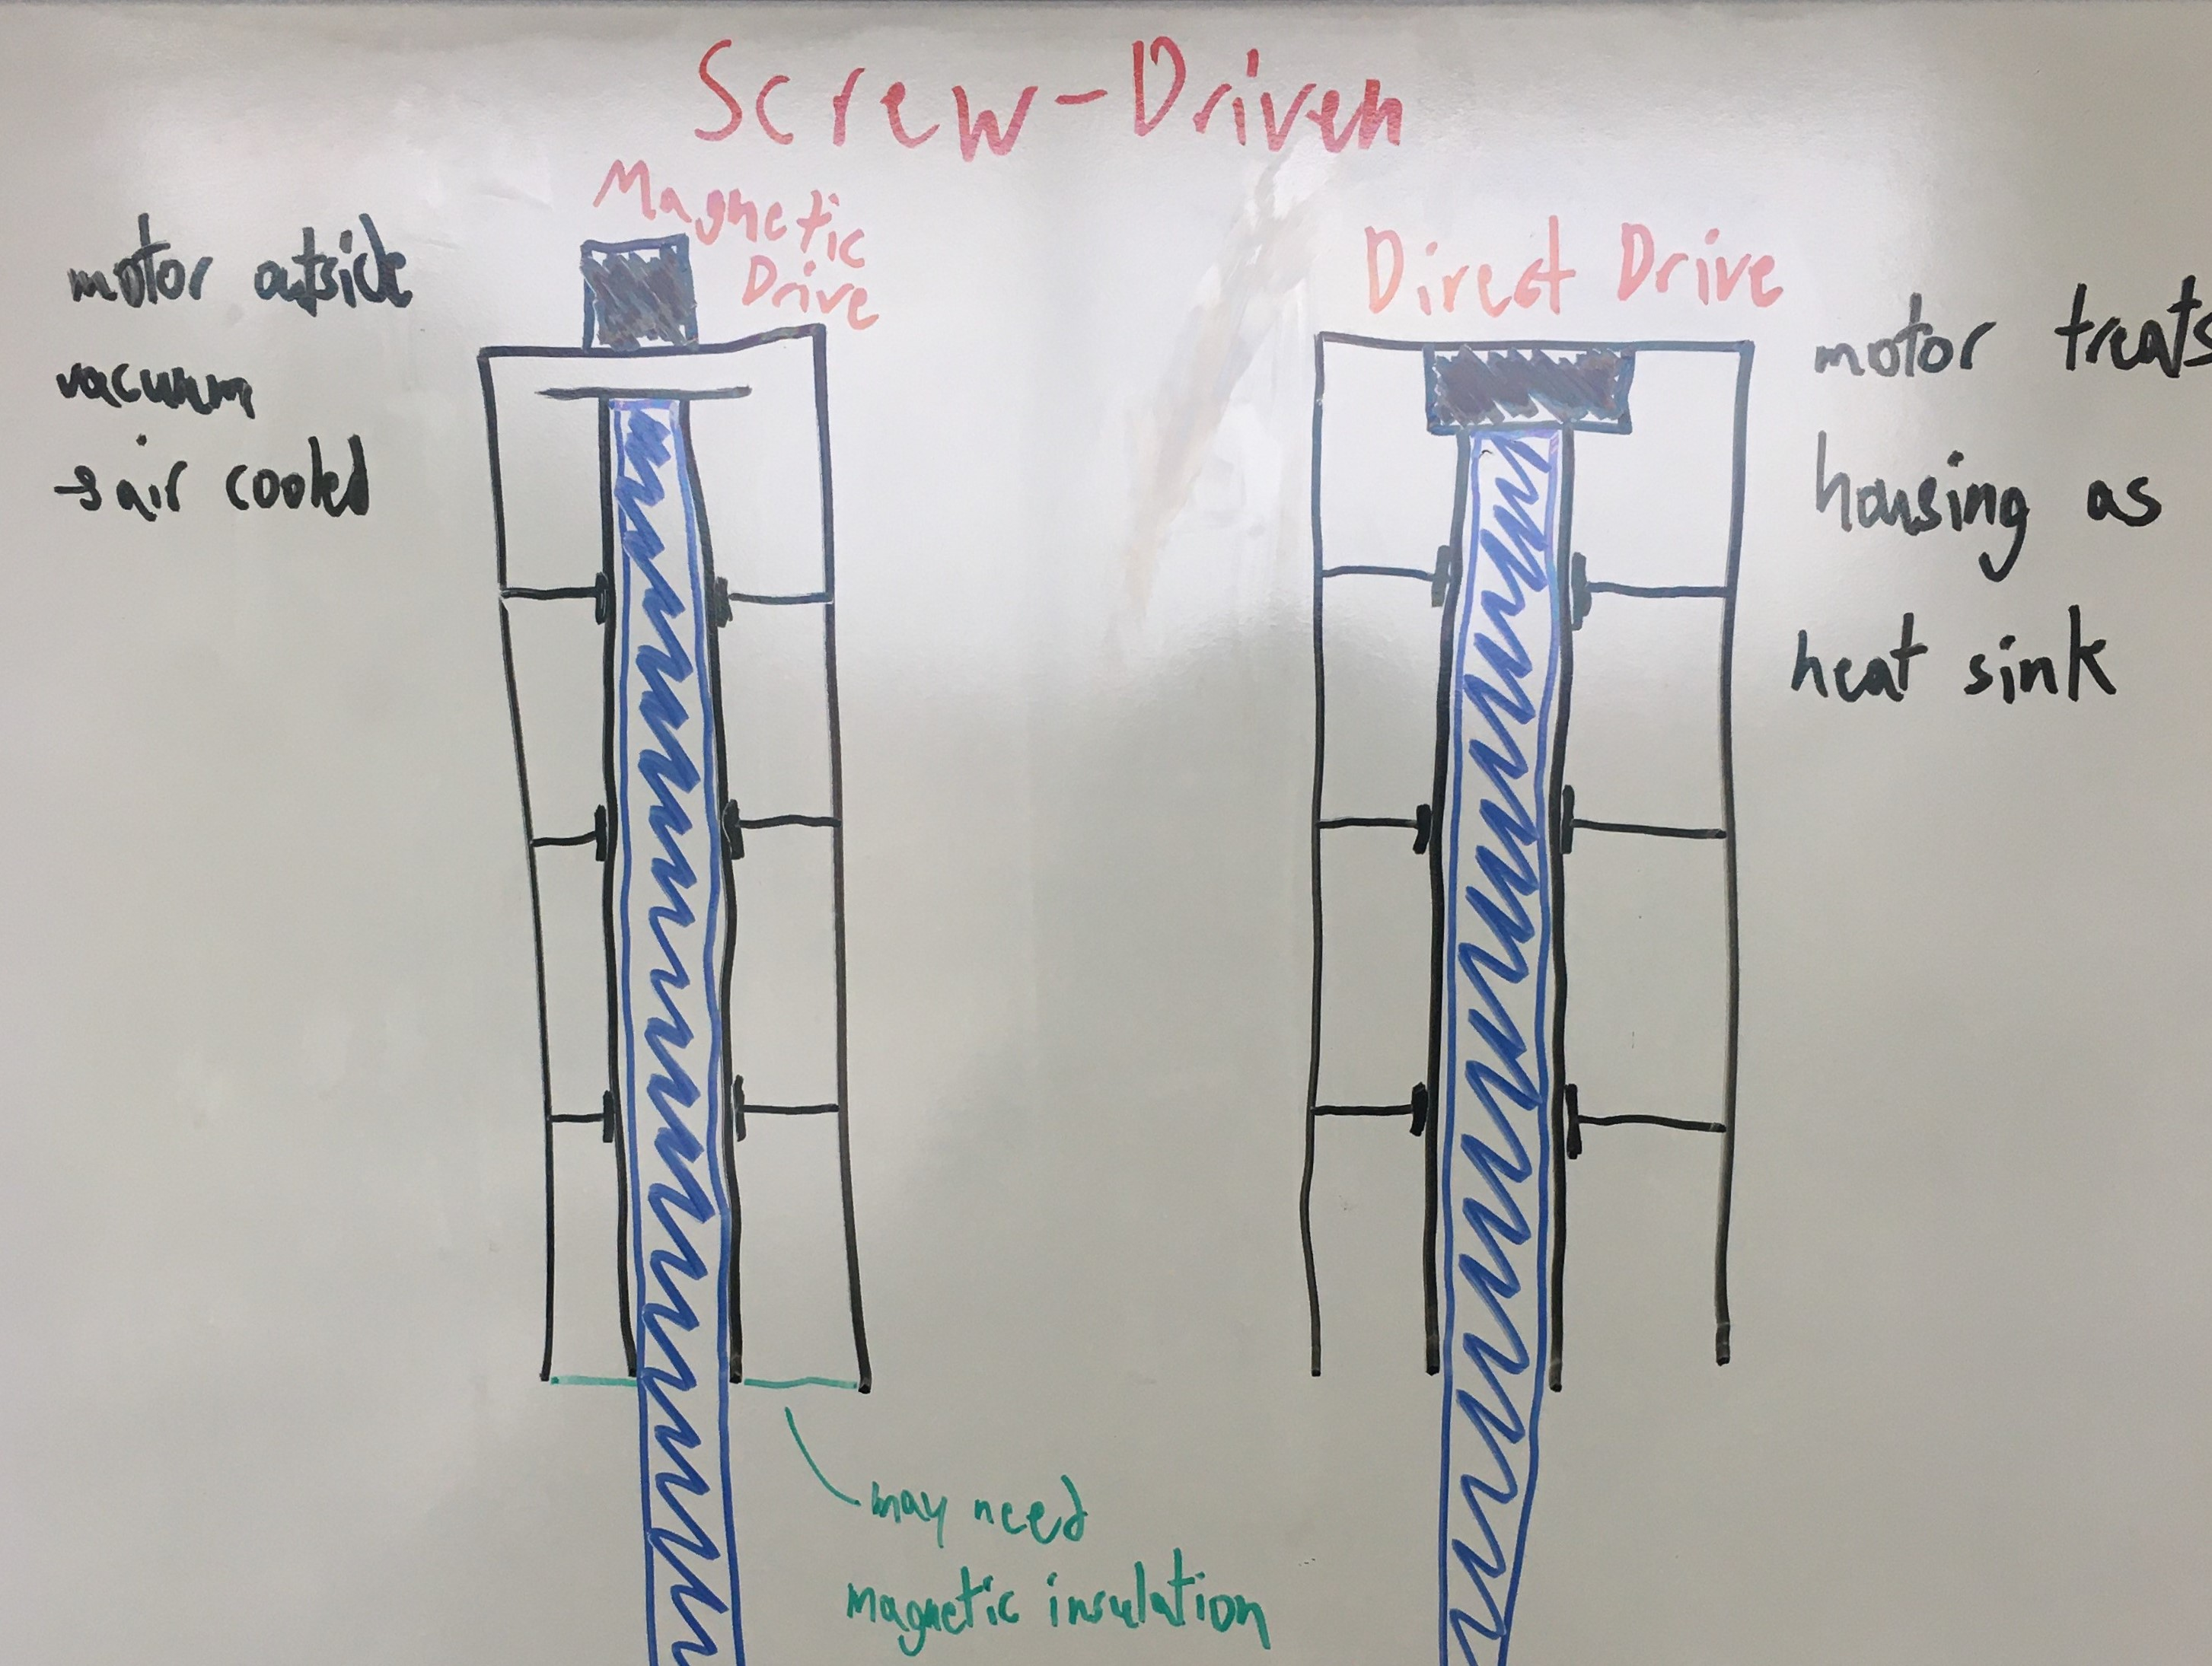 Screw-Driven
Magnetic
Drive
motor outside
vacuum
→ air cooled
Direct Drive
motor treats
housing as
heat sink
may need
magnetic insulation